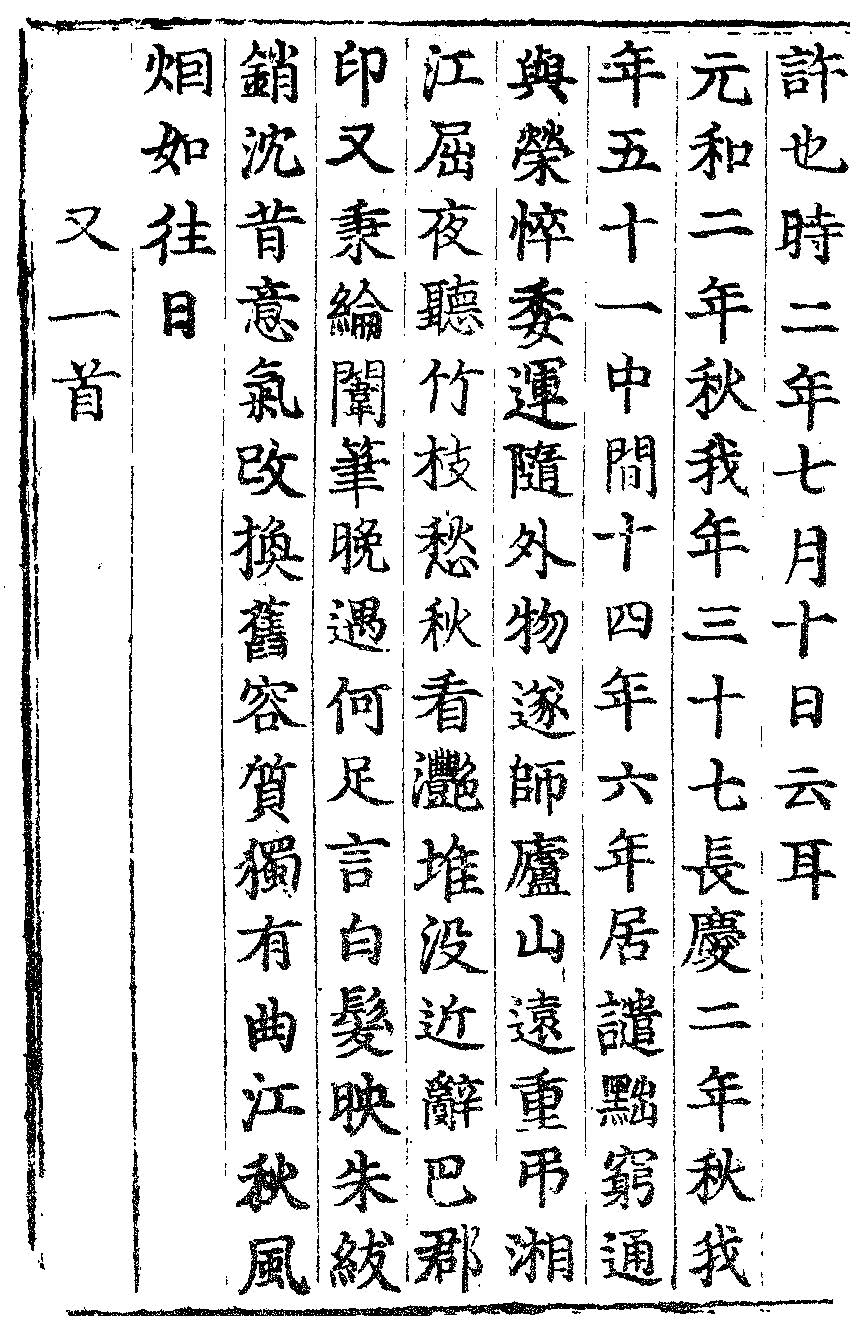 許也時二年七月十日云耳
元和二年秋我年三十七長慶二年秋我
年五十一中間十四年六年居譴黜窮通
與榮悴委運隨外物遂師廬山遠重弔湘
江屈夜聽竹枝愁秋看灧堆没近辭巴郡
印又秉綸闈筆晚遇何足言白髮映朱紱
銷沈昔意氣改換舊容質獨有曲江秋風
烟如往日
又一首